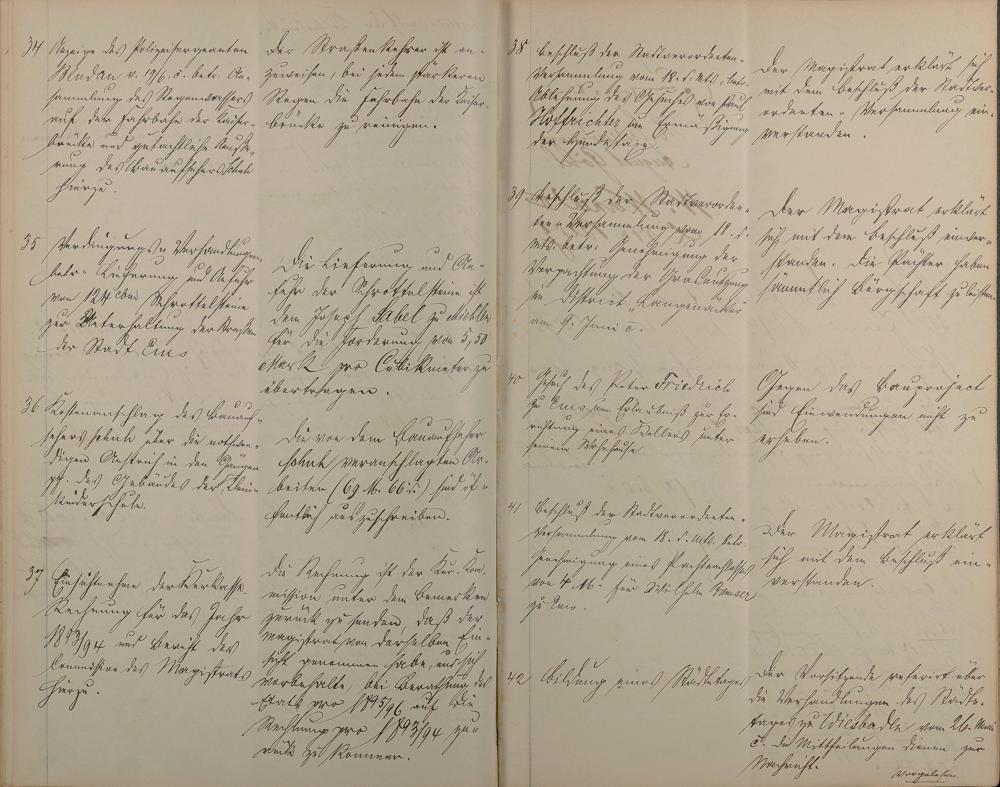 34 Anzeige des Polizeisergeanten
v. 19/6. c. betr. An-
sammlung des Regenwassers
auf der Fahrbahn der Kaiser-
brücke und gutachtliche Äuße-
rung des Bauaufsehers
hierzu.
Der Straßenkehrer ist an-
zuweisen, bei jedem stärkeren
Regen die Fahrbahn der Kaiser-
brücke zu reinigen.
35 Verdingungs-Verhandlungen,
betr. Lieferung und Anfuhr
von 124 cbm Schrottelsteine
zur Unterhaltung der Straßen
der Stadt Ems
Die Lieferung und An-
fuhr der Schrottelsteine ist
dem Joseph Fabel zu Miehlen
für die Forderung von 5,50
Mark pro Cubikmeter zu
übertragen.
36 Kostenanschlag des Bauauf-
sehers über die nothwen-
digen Anstriche in den Gängen
pp. des Gebäudes der Klein-
kinderschule.
Die von dem Bauaufseher
veranschlagten Ar-
beiten (69 M. 66 ) sind öf-
fentlich auszuschreiben.
37 Einsichtnahme der Kurkasse-
Rechnung für das Jahr
1893/94 und Bericht der
Commission des Magistrats
hierzu.
Die Rechnung ist der Kur-Kom-
mission unter dem Bemerken
zurück zu senden, daß der
Magistrat von derselben Ein-
sicht genommen habe, und sich
vorbehalte, bei Berathung des
Etats pro 1895/96 auf die
Rechnung pro 1893/94 zu-
rück zu kommen.
38 Beschluß der Stadtverordneten-
Versammlung vom 18. d. Mts., betr.
Ablehnung des Gesuches von Paul
Hoffrichter um Ermäßigung
der Hundetaxe.
Der Magistrat erklärt sich
mit dem Beschluß der Stadtver-
ordneten-Versammlung ein-
verstanden.
39 Beschluß der Stadtverordne-
ten-Versammlung vom 18. d.
Mts. betr. Genehmigung der
Verpachtung der Grasnutzung
im District Langenäcker
am 9. Juni c.
Der Magistrat erklärt
sich mit dem Beschluß einver-
standen. Die Pächter haben
sämmtlich Bürgschaft zu leisten.
40 Gesuch des Peter Friedrich
zu Ems um Erlaubniß zur Er-
richtung eines Kellers unter
seinem Wohnhause.
Gegen das Bauproject
sind Einwendungen nicht zu
erheben.
41 Beschluß der Stadtverordneten-
Versammlung vom 18. d. Mts. betr.
Genehmigung eines Pachtnachlasses
von 4 M. für Wilhelm
zu Ems.
Der Magistrat erklärt
sich mit dem Beschluß ein-
verstanden.
42 Bildung eines Städtetages
Der Vorsitzende referirt über
die Verhandlungen des Städte-
tages zu Wiesbaden vom 26. Mai
c. die Mittheilungen dienen zur
Nachricht.
Vorgelesen.